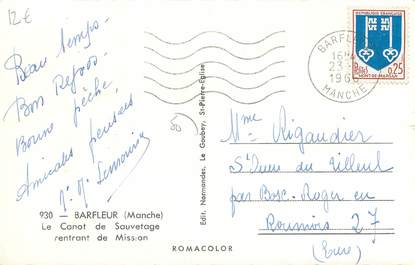 12€
Beau temps -
Bon Repos -
Bonne pêche,
Amicales pensées
50
930 — BARFLEUR (Manche)
Le Canot de Sauvetage
rentrant de Mission
ROMACOLOR
Edit. Normandes, Le Goubey, St-Pierre-Eglise
BARFLEUR
MANCHE
REPUBLIQUE FRANÇAISE
0,25
MONT-DE-MARSAN
Mme Rigaudier
St Ouen du Tilleul
par Bosc-Roger en
Roumois 27
(Eure)